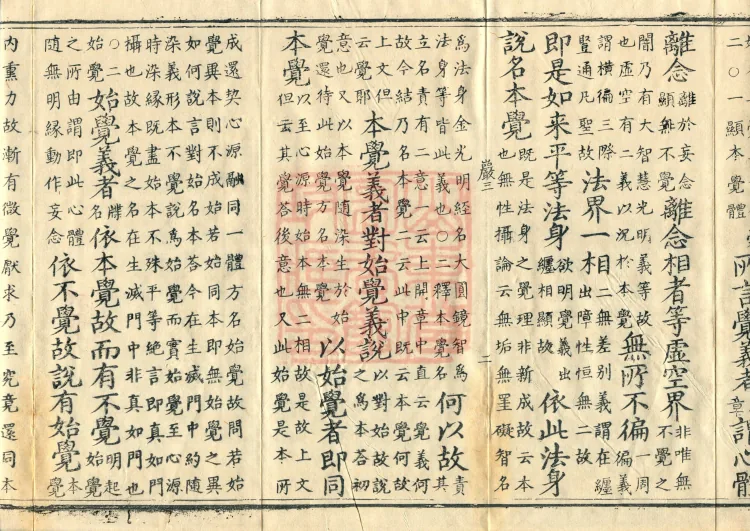 二〇一顯本覺體
所言覺義者章謂心體
離念離於妄念顯無不覺離念相者等虛空界非唯無不覺之
闇乃有大智慧光明義等故
也虛空有二義以況於本覺無所不徧一周徧義
謂橫徧三際豎通凡聖故法界一相二無差別義謂在纏出障性恒無二故
即是如來平等法身欲明覺義出纏相顯故依此法身
說名本覺既是法身之覺理非新成故云本也無性攝論云無垢無罣礙智名
嚴三
二
為法身金光明經名大圓鏡智為法身等皆此義也〇二釋本覺名何以故責其
立名責有二意一云上開章中直云覺義何故今結乃名本覺二云此中既云本覺何故
上文但云覺耶本覺義者對始覺義說以對始故說之為本答初
意也又以本覺隨染生於始覺還待此始覺方名本覺以始覺者即同
本覺以至心源時始本無二相故是故上文但云其覺答後意也又此始覺是本所
成還契心源融同一體方名始覺故問若始覺異本則不成始若始同本即無始覺之異
如何說言對始名本答今在生滅門中約隨染義形本不覺說為始覺而實始覺至心源
時染緣既盡始本不殊平等絕言即真如門攝也故本覺之名在生滅門中非真如門也
〇二始覺始覺義者牒名依本覺故而有不覺明起始覺
之所由謂即此心體隨無明緣動作妄念依不覺故說有始覺本覺
內熏力故漸有微覺厭求乃至究竟還同本